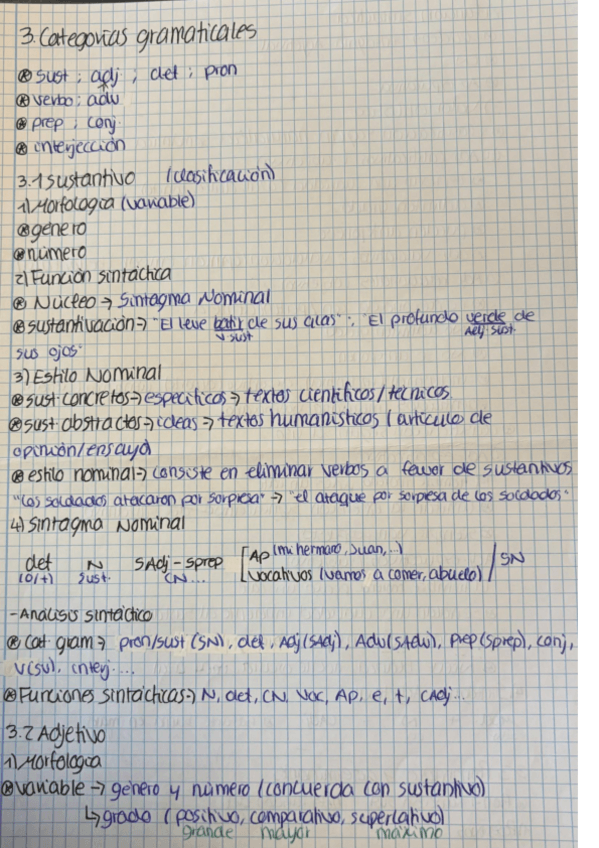 3. Categorías gramaticales
⊛ sust ; adj ; det ; pron
⊛ verbo ; adv
⊛ prep ; conj.
⊛ interjección
3.1 sustantivo (clasificación)
1) Morfología (variable)
⊛ género
⊛ número
2) Función sintáctica
⊛ Núcleo → Sintagma Nominal
⊛ sustantivación → "El leve batir de sus alas". "El profundo verde de
V sust Adj. sust.
sus ojos."
3) Estilo Nominal
⊛ sust. concretos → específicos → textos científicos / técnicos
⊛ sust abstractos → ideas → textos humanísticos (artículo de
opinión/ensayo)
⊛ estilo nominal → consiste en eliminar verbos a favor de sustantivos
"Los soldados atacaron por sorpresa" → "el ataque por sorpresa de los soldados."
4) Sintagma Nominal
det N SAdj - sprep [Ap (mi hermano, Juan,...) / SN
(0/+) sust. CN... [Vocativos (vamos a comer, abuelo)
- Análisis sintáctico
⊛ Cat. gram → pron/sust (SN), det, Adj (SAdj), Adv (SAdv), Prep (Sprep), conj,
V (SV), interj....
⊛ Funciones sintácticas → N, det, CN, Voc, Ap, e, t, CAdj...
3.2 Adjetivo
1) Morfología
⊛ variable → género y número (concuerda con sustantivo)
↳ grado (positivo, comparativo, superlativo)
grande mayor máximo